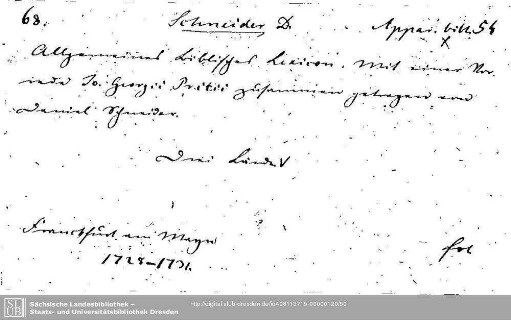 68. Schneider D. Appar. bibl. 54
x
Allgemeines biblisches Lexicon. Mit einer Vor
rede Jo. Georgii Pritii zusammen getragen von
Daniel Schneider.
Drei Bände
Franckfurt am Mayn
1728-1731. fol
SLUB
Sächsische Landesbibliothek –
Staats- und Universitätsbibliothek Dresden